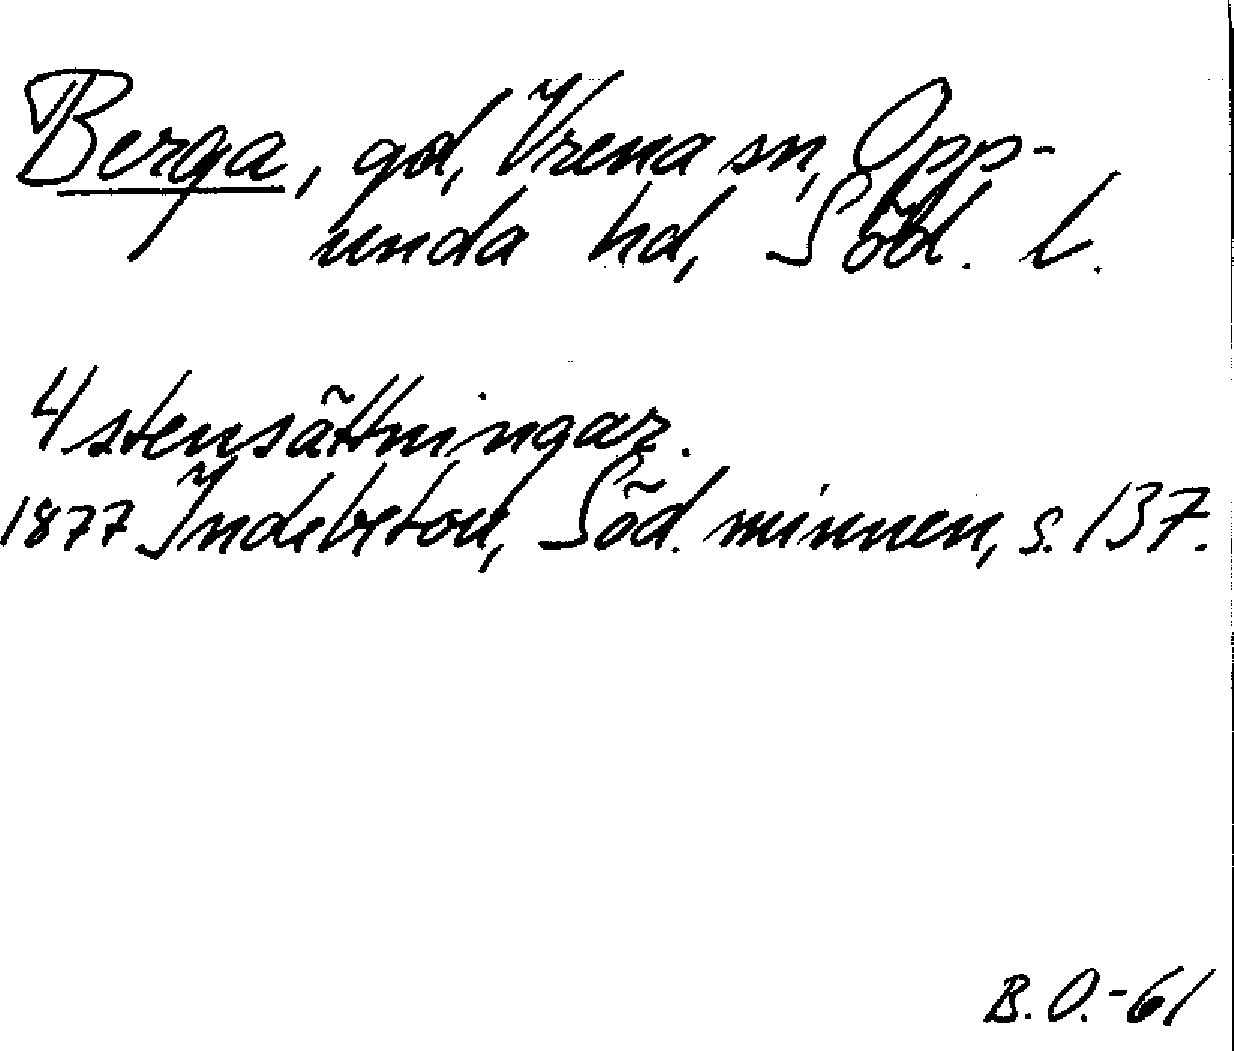 Berga, gd, Vrena sn, Opp-
unda hd, Södl. L.
4 stensättningar.
1877 Indebetou, Söd. minnen, s. 137.
B.O.-61